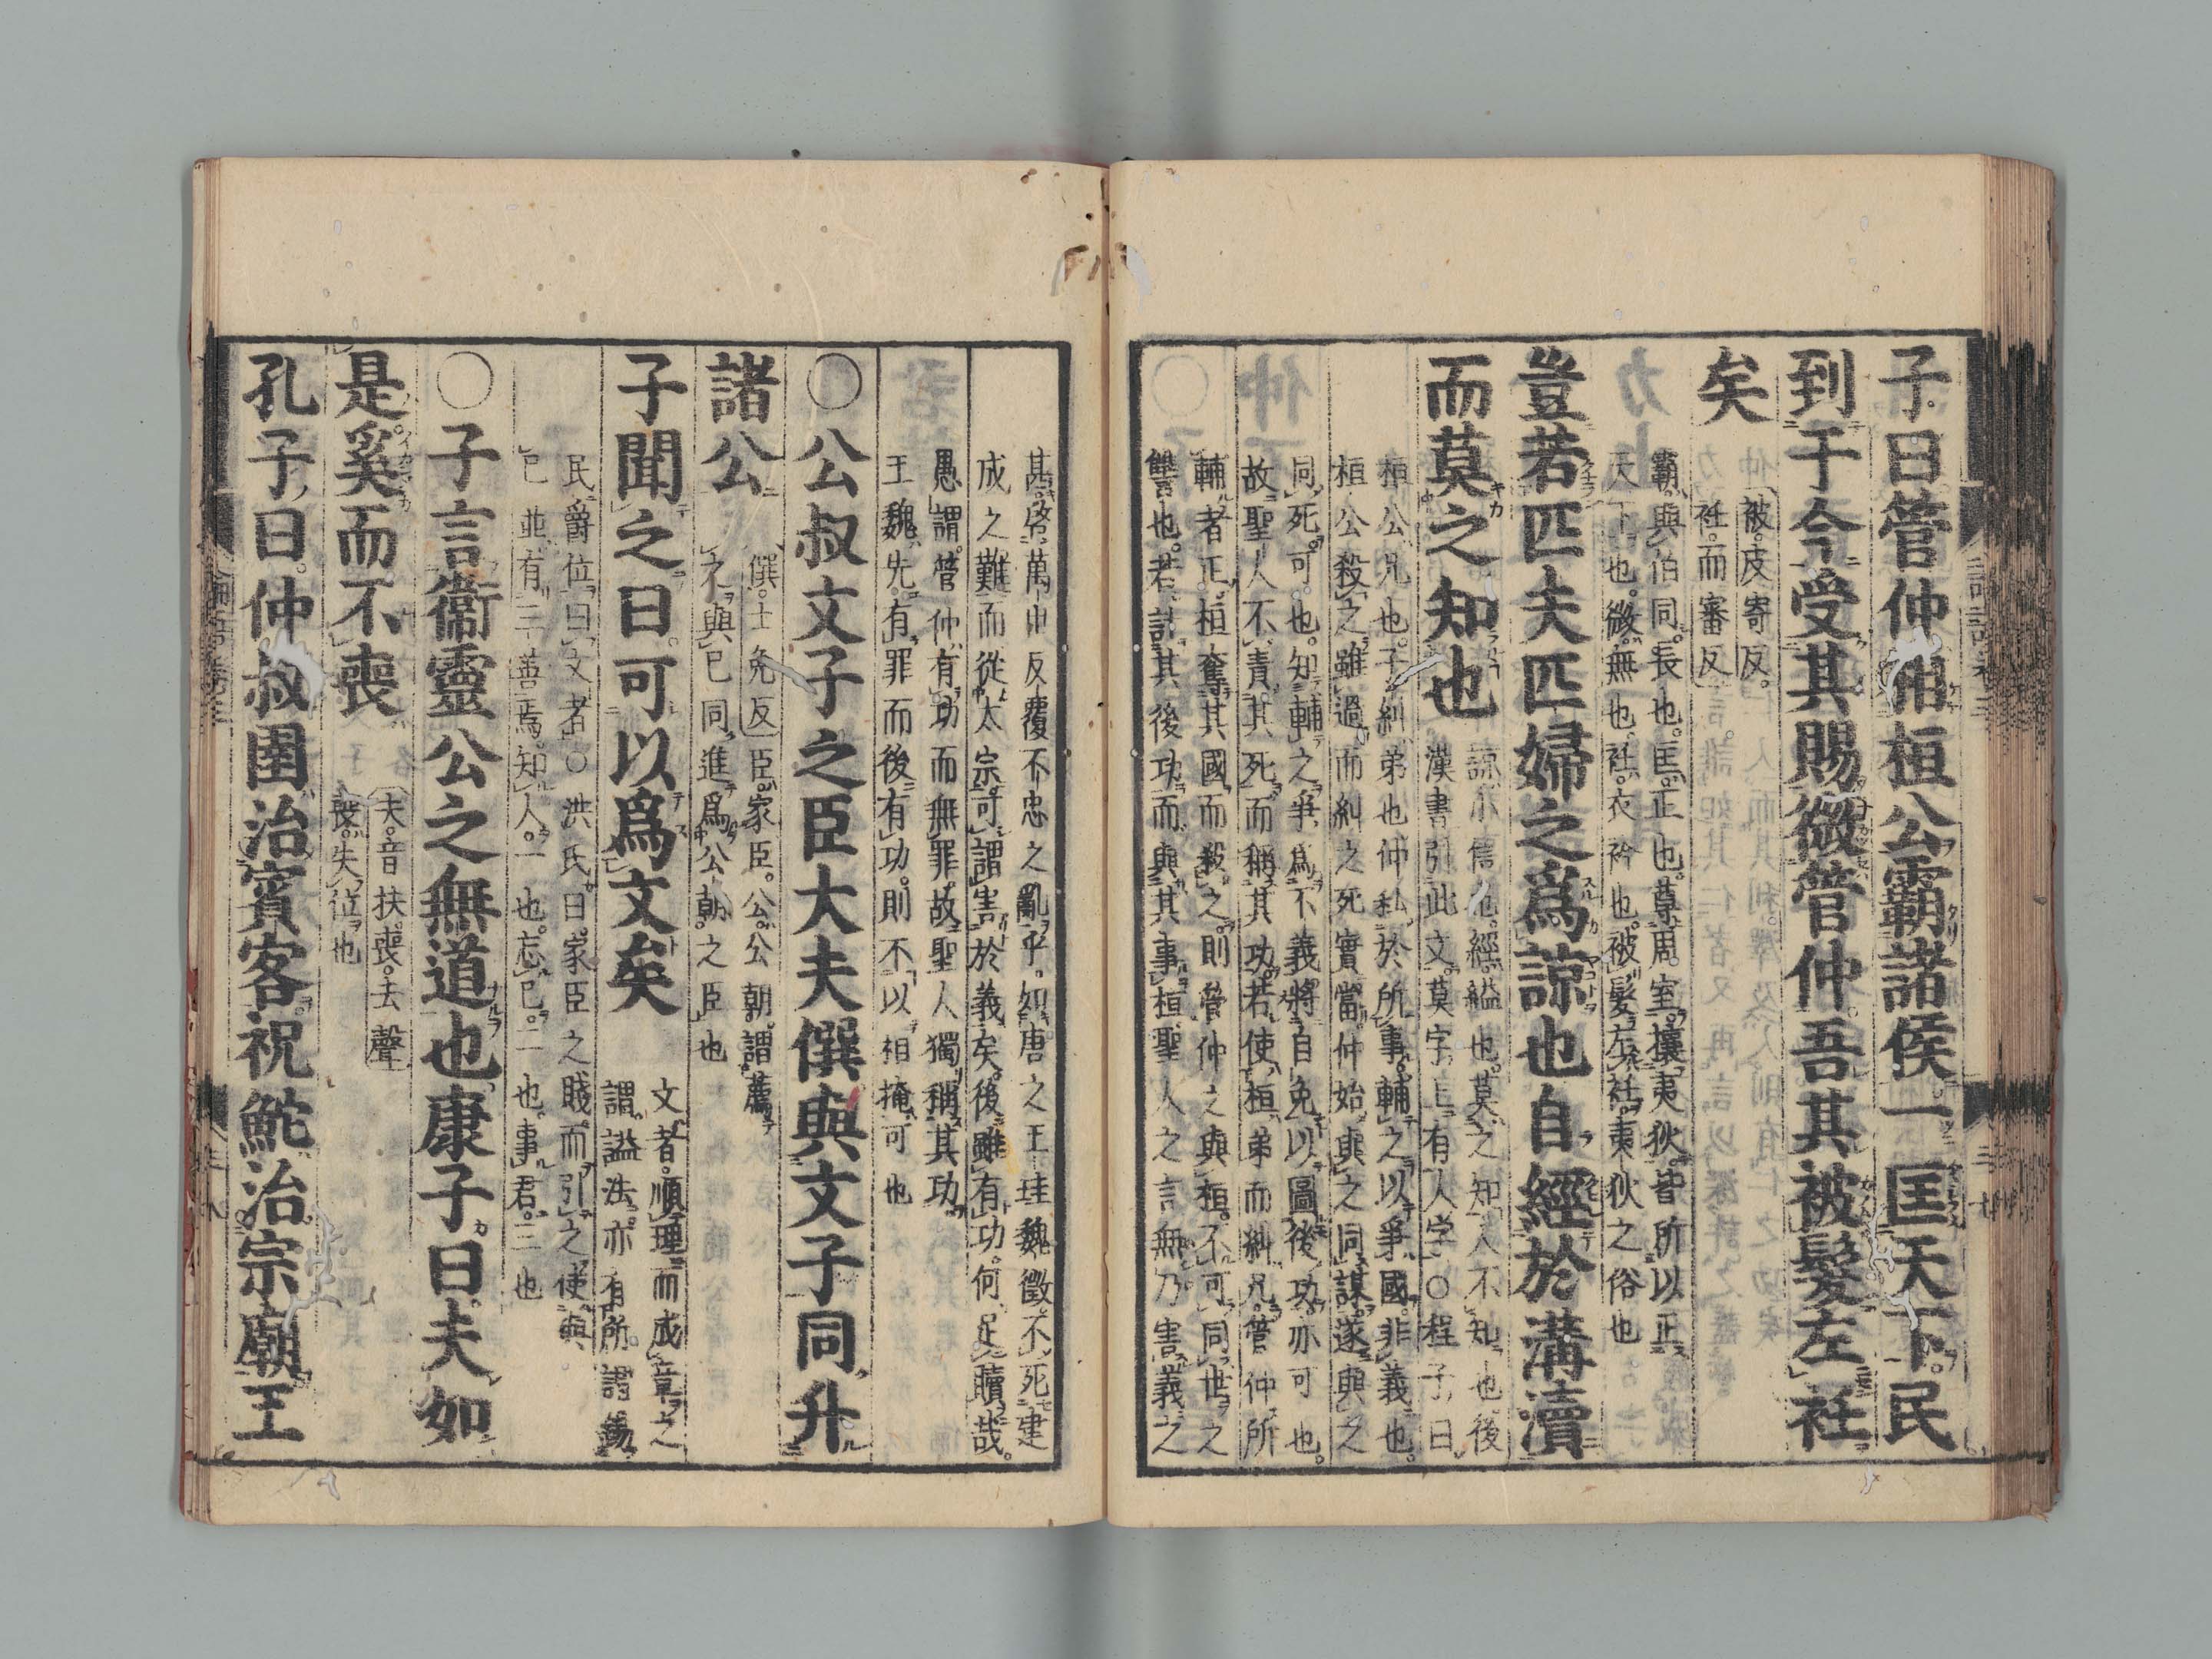 子曰管仲相桓公霸諸侯一匡天下民
到于今受其賜微管仲吾其被髮左衽
矣
被皮寄反
衽而審反
霸與伯同長也匡正也尊周室攘夷狄皆所以正
天下也微無也衽衣衿也被髮左衽夷狄之俗也
豈若匹夫匹婦之爲諒也自經於溝瀆
而莫之知也
諒小信也經縊也莫之知人不知也後
漢書引此文莫字上有人字○程子曰
桓公兄也子糾弟也仲私於所事輔之以爭國非義也
桓公殺之雖過而糾之死實當仲始與之同謀遂與之
同死可也知輔之爭爲不義將自免以圖後功亦可也
故聖人不責其死而稱其功若使桓弟而糾兄管仲所
輔者正桓奪其國而殺之則管仲之與桓不可同世之
讐也若計其後功而與其事桓聖人之言無乃害義之
甚啓萬世反覆不忠之亂乎如唐之王珪魏徵不死建
成之難而從太宗可謂害於義矣後雖有功何足贖哉
愚謂管仲有功而無罪故聖人獨稱其功
王魏先有罪而後有功則不以相掩可也
○公叔文子之臣大夫僎與文子同升
諸公
僎士免反臣家臣公公朝謂薦
之與己同進爲公朝之臣也
子聞之曰可以爲文矣
文者順理而成章之
謂謚法亦有所謂錫
民爵位曰文者○洪氏曰家臣之賤而引之使與
己並有三善焉知人一也忘己二也事君三也
○子言衞靈公之無道也康子曰夫如
是奚而不喪
夫音扶喪去聲
喪失位也
孔子曰仲叔圉治賓客祝鮀治宗廟王